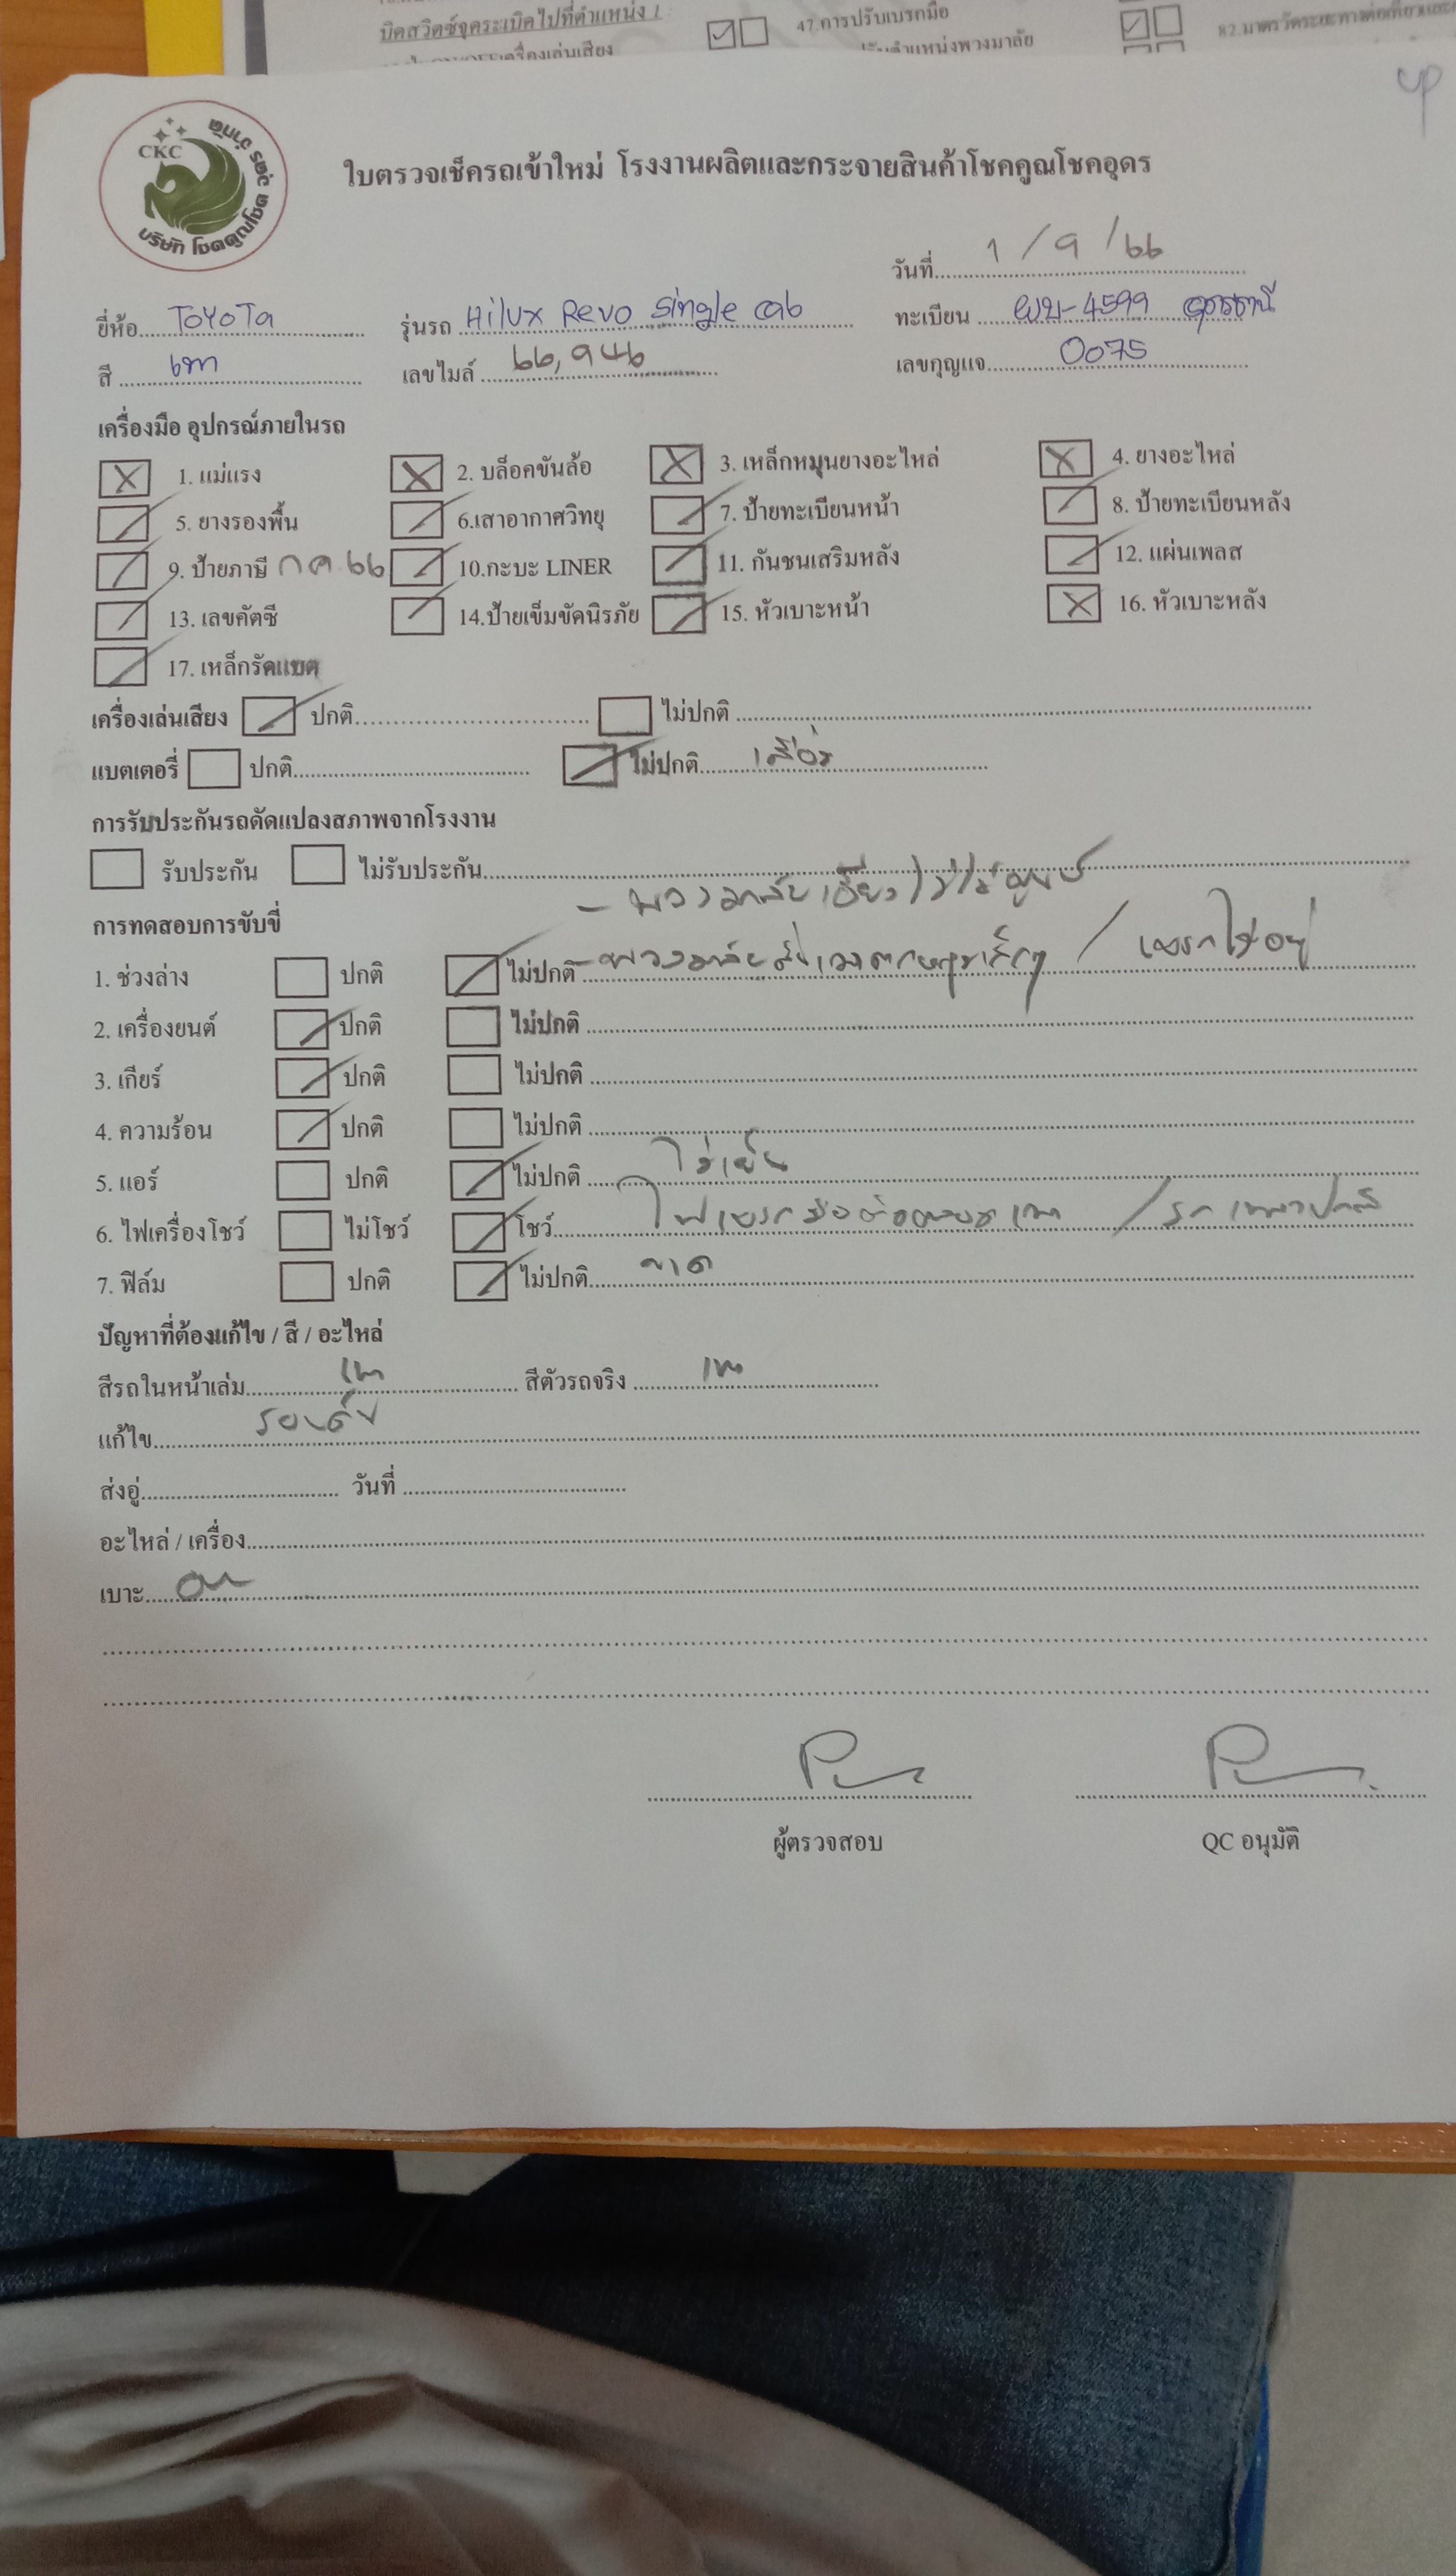 บิดสวิตซ์จุดระเบิดไปที่ตำแหน่ง 1
47.การปรับเบรกมือ
82.มาตรวัดระยะทางต่อเที่ยว
เครื่องเล่นเสียง
ตำแหน่งพวงมาลัย
CKC
บริษัท โชคคูณโชค อุดร จำกัด
ใบตรวจเช็ครถเข้าใหม่ โรงงานผลิตและกระจายสินค้าโชคคูณโชคอุดร
วันที่ 1/9/66
ยี่ห้อ ToYoTa รุ่นรถ Hilux Revo single cab ทะเบียน ผบ-4599 อุดรธานี
สี เทา เลขไมล์ 66,946 เลขกุญแจ 0075
เครื่องมือ อุปกรณ์ภายในรถ
1. แม่แรง 2. บล็อคขันล้อ 3. เหล็กหมุนยางอะไหล่ 4. ยางอะไหล่
5. ยางรองพื้น 6.เสาอากาศวิทยุ 7. ป้ายทะเบียนหน้า 8. ป้ายทะเบียนหลัง
9. ป้ายภาษี กค 66 10.กะบะ LINER 11. กันชนเสริมหลัง 12. แผ่นเพลส
13. เลขคัตซี 14.ป้ายเข็มขัดนิรภัย 15. หัวเบาะหน้า 16. หัวเบาะหลัง
17. เหล็กรัดแบต
เครื่องเล่นเสียง ปกติ ไม่ปกติ
แบตเตอรี่ ปกติ ไม่ปกติ เสื่อม
การรับประกันรถดัดแปลงสภาพจากโรงงาน
รับประกัน ไม่รับประกัน
- พวงมาลัยเอียงไม่ได้ศูนย์
การทดสอบการขับขี่
1. ช่วงล่าง ปกติ ไม่ปกติ - พวงมาลัยสั่นเวลาตกหลุมเล็กๆ / เบรกไม่อยู่
2. เครื่องยนต์ ปกติ ไม่ปกติ
3. เกียร์ ปกติ ไม่ปกติ
4. ความร้อน ปกติ ไม่ปกติ
5. แอร์ ปกติ ไม่ปกติ ไม่เย็น
6. ไฟเครื่องโชว์ ไม่โชว์ โชว์ ไฟเบรกมือติดตลอดเวลา /
7. ฟิล์ม ปกติ ไม่ปกติ ขาด
ปัญหาที่ต้องแก้ไข / สี / อะไหล่
สีรถในหน้าเล่ม เทา สีตัวรถจริง เทา
แก้ไข รอบคัน
ส่งอู่ วันที่
อะไหล่ / เครื่อง
เบาะ
ผู้ตรวจสอบ QC อนุมัติ